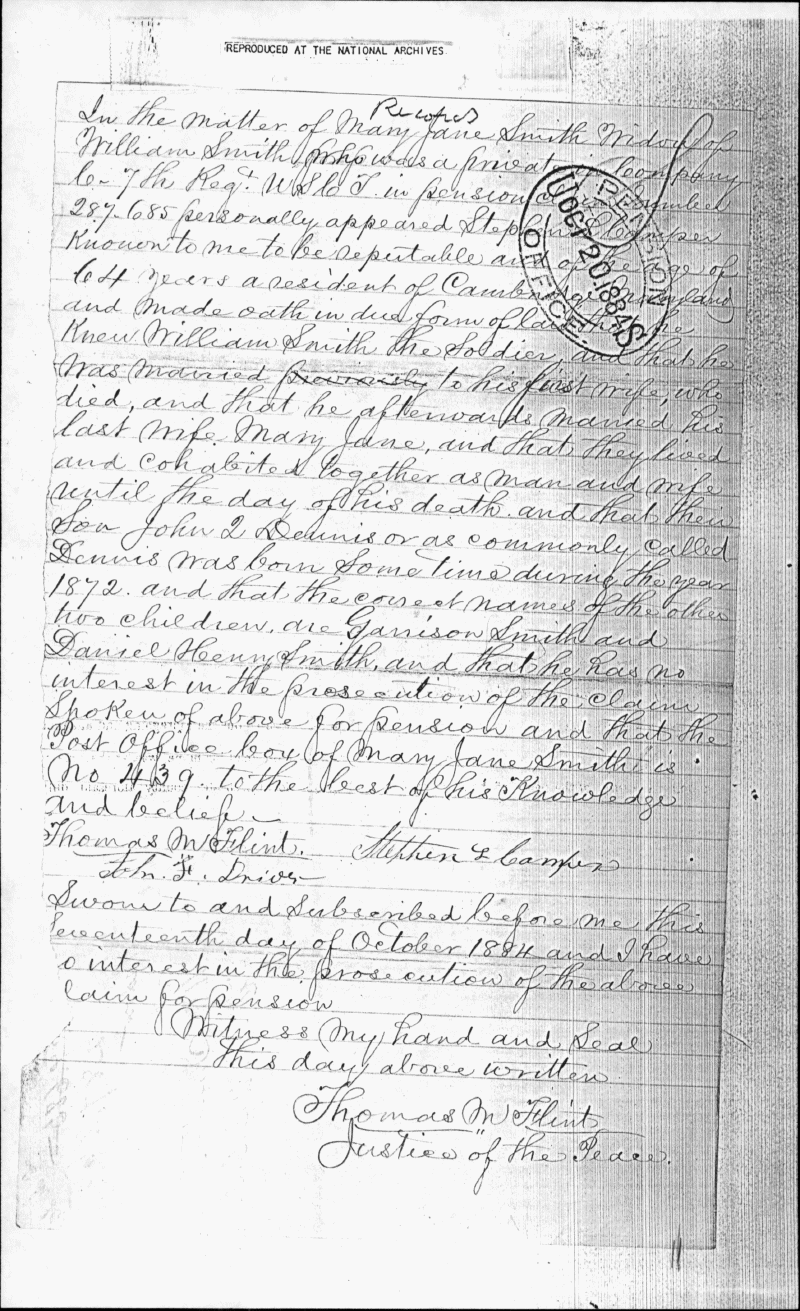 REPRODUCED AT THE NATIONAL ARCHIVES
In the matter of Mary Jane Smith Widow of
William Smith, who was a privat in Company
C- 7th Regt. U S C T. in pension number
287.685 personally appeared Stephen Camper
Known to me to be reputable and of the age of
64 years a resident of Cambridge Maryland
and made oath in due form of law that he
Knew William Smith the Soldier, and that he
was married previously to his first wife, who
died, and that he afterwards married his
last wife Mary Jane, and that they lived
and cohabited together as man and wife
until the day of his death. and that their
Son John 2 Dennis or as commonly called
Dennis was born Some time during the year
1872. and that the correct names of the other
two children, are Garrison Smith and
Daniel Henry Smith, and that he has no
interest in the prosecution of the claim
Spoken of above for pension and that the
Post Office box of Mary Jane Smith is
No 439. to the best of his Knowledge
and belief-
Thomas M Flint. Stephen Camper
John. F. Driver
Sworn to and Subscribed before me this
seventeenth day of October 1884 and I have
o interest in the prosecution of the above
laim for pension
Witness my hand and Seal
this day above written
Thomas M Flint
Justice of the Peace.
U.S. PENSION OFFICE.
OCT 20 1884